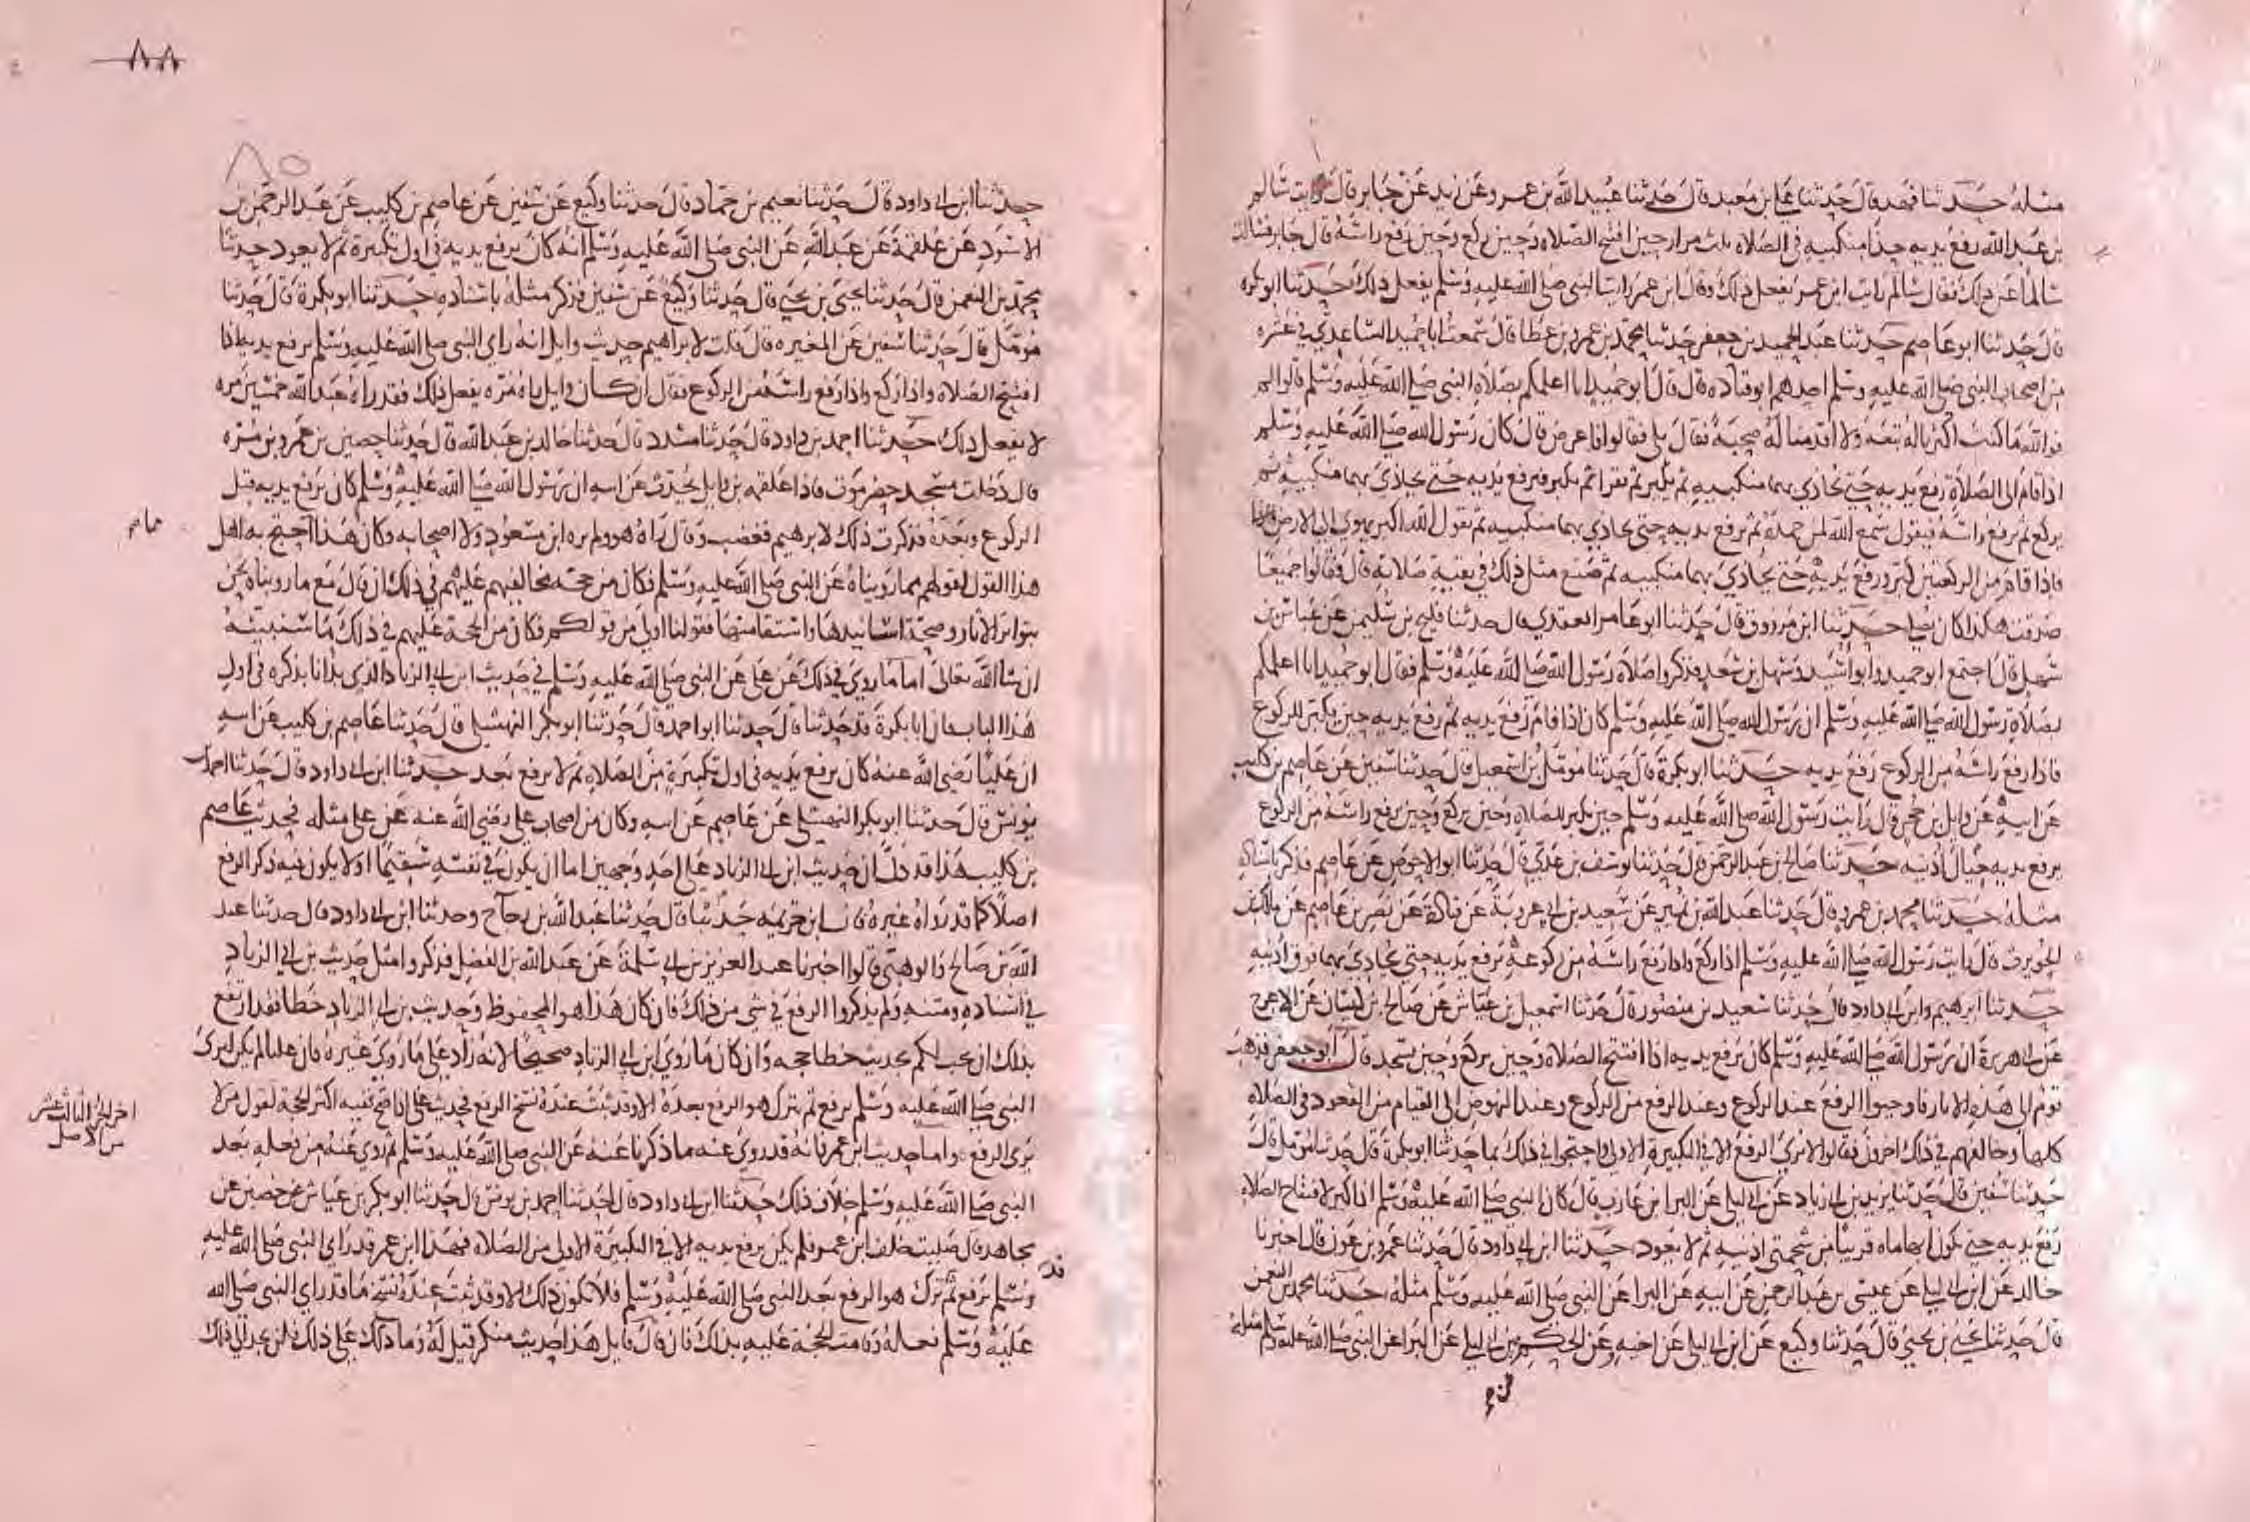 مثله حدثنا فهد قال حدثنا علي بن معبد قال حدثنا عبيد الله بن عمرو عن زيد عن جابر قال رايت سالم
بن عبد الله رفع يديه حذا منكبيه في الصلاة ثلث مرار حين افتتح الصلاة وحين ركع وحين رفع راسه قال جابر فسالت
سالما عن ذلك فقال سالم رايت ابن عمر يفعل ذلك وقال ابن عمر رايت النبي صلى الله عليه وسلم يفعل ذلك حدثنا ابو بكرة
قال حدثنا ابو عاصم حدثنا عبد الحميد بن جعفر حدثنا محمد بن عمرو بن عطا قال سمعت ابا حميد الساعدي في عشرة
من اصحاب النبي صلى الله عليه وسلم احدهم ابو قتادة قال قال ابو حميد انا اعلمكم بصلاة النبي صلى الله عليه وسلم قالوا لم
فوالله ما كنت اكثرنا له تبعة ولا اقدمنا له صحبة فقال بلى فقالوا فاعرض قال كان رسول الله صلى الله عليه وسلم
اذا قام الى الصلاة رفع يديه حتى يحاذي بهما منكبيه ثم يكبر ثم يقرا ثم يكبر فيرفع يديه حتى يحاذي بهما منكبيه ثم
يركع ثم يرفع راسه فيقول سمع الله لمن حمده ثم يرفع يديه حتى يحاذي بهما منكبيه ثم يقول الله اكبر يهوي الى الارض
فاذا قام من الركعتين كبر ورفع يديه حتى يحاذي بهما منكبيه ثم صنع مثل ذلك في بقية صلاته قال فقالوا جميعا
صدقت هكذا كان يصلي حدثنا ابن مرزوق قال حدثنا ابو عامر العقدي قال حدثنا فليح بن سليمن عن عباس بن
سهل قال اجتمع ابو حميد وابو اسيد وسهل بن سعد فذكروا صلاة رسول الله صلى الله عليه وسلم فقال ابو حميد انا اعلمكم
بصلاة رسول الله صلى الله عليه وسلم ان رسول الله صلى الله عليه وسلم كان اذا قام رفع يديه ثم رفع يديه حين يكبر للركوع
فاذا رفع راسه من الركوع رفع يديه حدثنا ابو بكرة قال حدثنا مومل بن اسمعيل قال حدثنا سفين عن عاصم بن كليب
عن ابيه عن وايل بن حجر قال رايت رسول الله صلى الله عليه وسلم حين يكبر للصلاة وحين يركع وحين يرفع راسه من الركوع
يرفع يديه حيال اذنيه حدثنا صالح بن عبد الرحمن قال حدثنا يوسف بن عدي قال حدثنا ابو الاحوص عن عاصم فذكر باسناده
مثله حدثنا محمد بن عمرو قال حدثنا عبد الله بن نمير عن سعيد بن ابي عروبة عن قتادة عن نصر بن عاصم عن مالك بن
الحويرث قال رايت رسول الله صلى الله عليه وسلم اذا ركع واذا رفع راسه من ركوعه يرفع يديه حتى يحاذي بهما فوق اذنيه
حدثنا ابرهيم وابن ابي داود قال حدثنا سعيد بن منصور قال حدثنا اسمعيل بن عياش عن صالح بن كيسان عن الاعرج
عن ابي هريرة ان رسول الله صلى الله عليه وسلم كان يرفع يديه اذا افتتح الصلاة وحين يركع وحين يسجد قال ابو جعفر فذهب
قوم الى هذه الاثار فاوجبوا الرفع عند الركوع وعند الرفع من الركوع وعند النهوض الى القيام من القعود في الصلاة
كلها وخالفهم في ذلك اخرون فقالوا لا نرى الرفع الا في التكبيرة الاولى واحتجوا في ذلك بما حدثنا ابو بكرة قال حدثنا مومل قال
حدثنا سفين قال حدثنا يزيد بن ابي زياد عن ابن ابي ليلى عن البرا بن عازب قال كان النبي صلى الله عليه وسلم اذا كبر لافتتاح الصلاة
رفع يديه حتى يكون ابهاماه قريبا من شحمتي اذنيه ثم لا يعود حدثنا ابن ابي داود قال حدثنا عمرو بن عون قال اخبرنا
خالد عن ابن ابي ليلى عن عيسى بن عبد الرحمن عن ابيه عن البرا عن النبي صلى الله عليه وسلم مثله حدثنا محمد بن النعمن
قال حدثنا يحيى بن يحيى قال حدثنا وكيع عن ابن ابي ليلى عن اخيه وعن الحكم عن ابن ابي ليلى عن البرا عن النبي صلى الله عليه وسلم مثله
٨٨
٨٥
حدثنا ابن ابي داود قال حدثنا نعيم بن حماد قال حدثنا وكيع عن سفين عن عاصم بن كليب عن عبد الرحمن بن
الاسود عن علقمة عن عبد الله عن النبي صلى الله عليه وسلم انه كان يرفع يديه في اول تكبيرة ثم لا يعود حدثنا
محمد بن النعمن قال حدثنا يحيى بن يحيى قال حدثنا وكيع عن سفين فذكر مثله باسناده حدثنا ابو بكرة قال حدثنا
مومل قال حدثنا سفين عن المغيرة قال قلت لابراهيم حديث وايل انه راى النبي صلى الله عليه وسلم يرفع يديه اذا
افتتح الصلاة واذا ركع واذا رفع راسه من الركوع فقال ان كان وايل راه مرة يفعل ذلك فقد راه عبد الله خمسين مرة
لا يفعل ذلك حدثنا احمد بن داود قال حدثنا مسدد قال حدثنا خالد بن عبد الله قال حدثنا حصين بن عمرو بن مرة
قال دخلت مسجد حضرموت فاذا علقمة بن وايل يحدث عن ابيه ان رسول الله صلى الله عليه وسلم كان يرفع يديه قبل
الركوع وبعده فذكرت ذلك لابرهيم فغضب وقال راه هو ولم يره ابن مسعود ولا اصحابه وكان هذا احتج به اهل
هذا القول لقولهم مما رويناه عن النبي صلى الله عليه وسلم فكان من حجة مخالفيهم عليهم في ذلك ان قال مع ما رويناه نحن
بتواتر الاثار وصحة اسانيدها واستقامتها فقولنا اولى من قولكم فكان من الحجة عليهم في ذلك ما سنبينه
ان شا الله تعالى اما ما روي في ذلك عن علي عن النبي صلى الله عليه وسلم في حديث ابن ابي الزناد الذي بدانا بذكره في اول
هذا الباب فان ابا بكرة قد حدثنا قال حدثنا ابو احمد قال حدثنا ابو بكر النهشلي قال حدثنا عاصم بن كليب عن ابيه
ان عليا رضي الله عنه كان يرفع يديه في اول تكبيرة من الصلاة ثم لا يرفع بعد حدثنا ابن ابي داود قال حدثنا احمد بن
يونس قال حدثنا ابو بكر النهشلي عن عاصم عن ابيه وكان من اصحاب علي رضي الله عنه عن علي مثله فحديث عاصم
بن كليب هذا قد دل ان حديث ابن ابي الزناد على احد وجهين اما ان يكون في نفسه سقيما او لا يكون فيه ذكر الرفع
اصلا كما قد رواه غيره فان ابن خزيمة حدثنا قال حدثنا عبد الله بن رجاح وحدثنا ابن ابي داود قال حدثنا عبد
الله بن صالح والوهبي قالوا اخبرنا عبد العزيز بن ابي سلمة عن عبد الله بن الفضل فذكروا مثل حديث بن ابي الزناد
في اسناده ومتنه ولم يذكروا الرفع في شي من ذلك فان كان هذا هو المحفوظ وحديث بن ابي الزناد خطا فقد ارتفع
بذلك ان يجب لكم بحديث خطا حجة وان كان ما روي ابن ابي الزناد صحيحا لانه زاد على ما روى غيره فان عليا لم يكن ليرى
النبي صلى الله عليه وسلم يرفع ثم يترك هو الرفع بعده الا وقد ثبت عنده نسخ الرفع فحديث علي اذا صح ففيه اكثر الحجة لقول من لا
يرى الرفع واما حديث ابن عمر فانه قد روي عنه ما ذكرنا عنه عن النبي صلى الله عليه وسلم ثم روي عنه من فعله بعد
النبي صلى الله عليه وسلم خلاف ذلك حدثنا ابن ابي داود قال حدثنا احمد بن يونس قال حدثنا ابو بكر بن عياش عن حصين عن
مجاهد قال صليت خلف ابن عمر فلم يكن يرفع يديه الا في التكبيرة الاولى من الصلاة فهذا ابن عمر قد راى النبي صلى الله عليه
وسلم يرفع ثم ترك هو الرفع بعد النبي صلى الله عليه وسلم فلا يكون ذلك الا وقد ثبت عنده نسخ ما قد راى النبي صلى الله
عليه وسلم فعله وقامت الحجة عليه بذلك فان قال قايل هذا حديث منكر قيل له وما دلك على ذلك فلن تجد الى ذلك
اخر الجزء الثالث عشر
من الاصل
قد